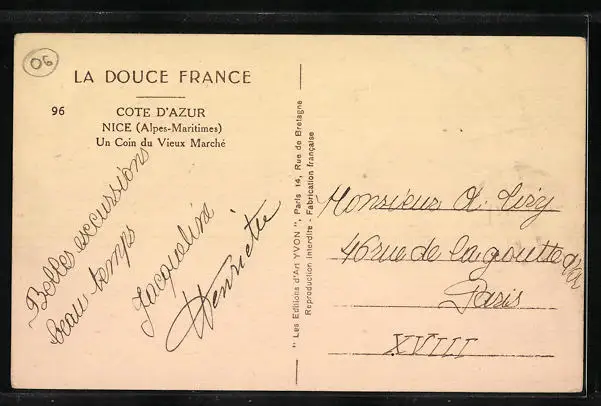 06
LA DOUCE FRANCE
96
COTE D'AZUR
NICE (Alpes-Maritimes)
Un Coin du Vieux Marché
Belles excursions
beau temps
Jacqueline
Henriette
" Les Editions d'Art YVON ", Paris 14, Rue de Bretagne
Reproduction Interdite - Fabrication française
Monsieur A.
46 rue de la goutte d'or
Paris
XVIII